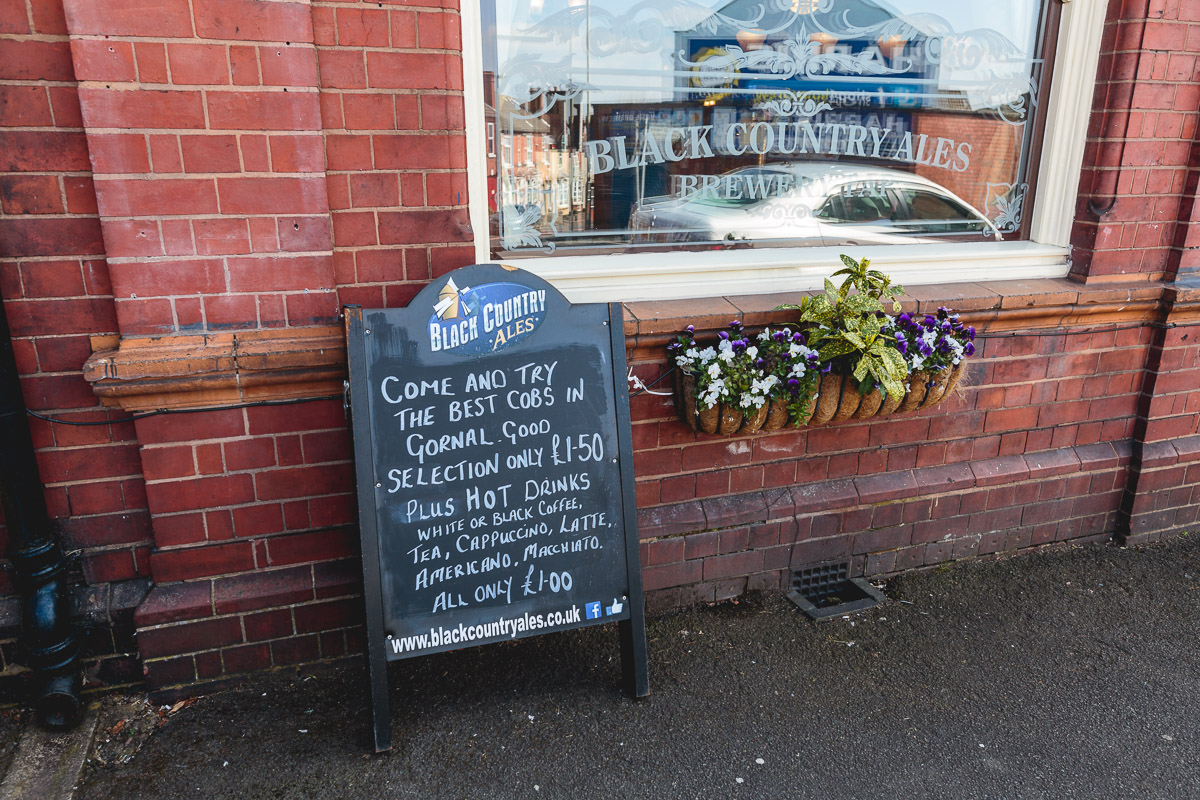 BLACK COUNTRY ALES
BREWERY TAP
BLACK COUNTRY
ALES
COME AND TRY
THE BEST COBS IN
GORNAL. GOOD
SELECTION ONLY £1-50
PLUS HOT DRINKS
WHITE OR BLACK COFFEE,
TEA, CAPPUCCINO, LATTE,
AMERICANO, MACCHIATO.
ALL ONLY £1-00
www.blackcountryales.co.uk f